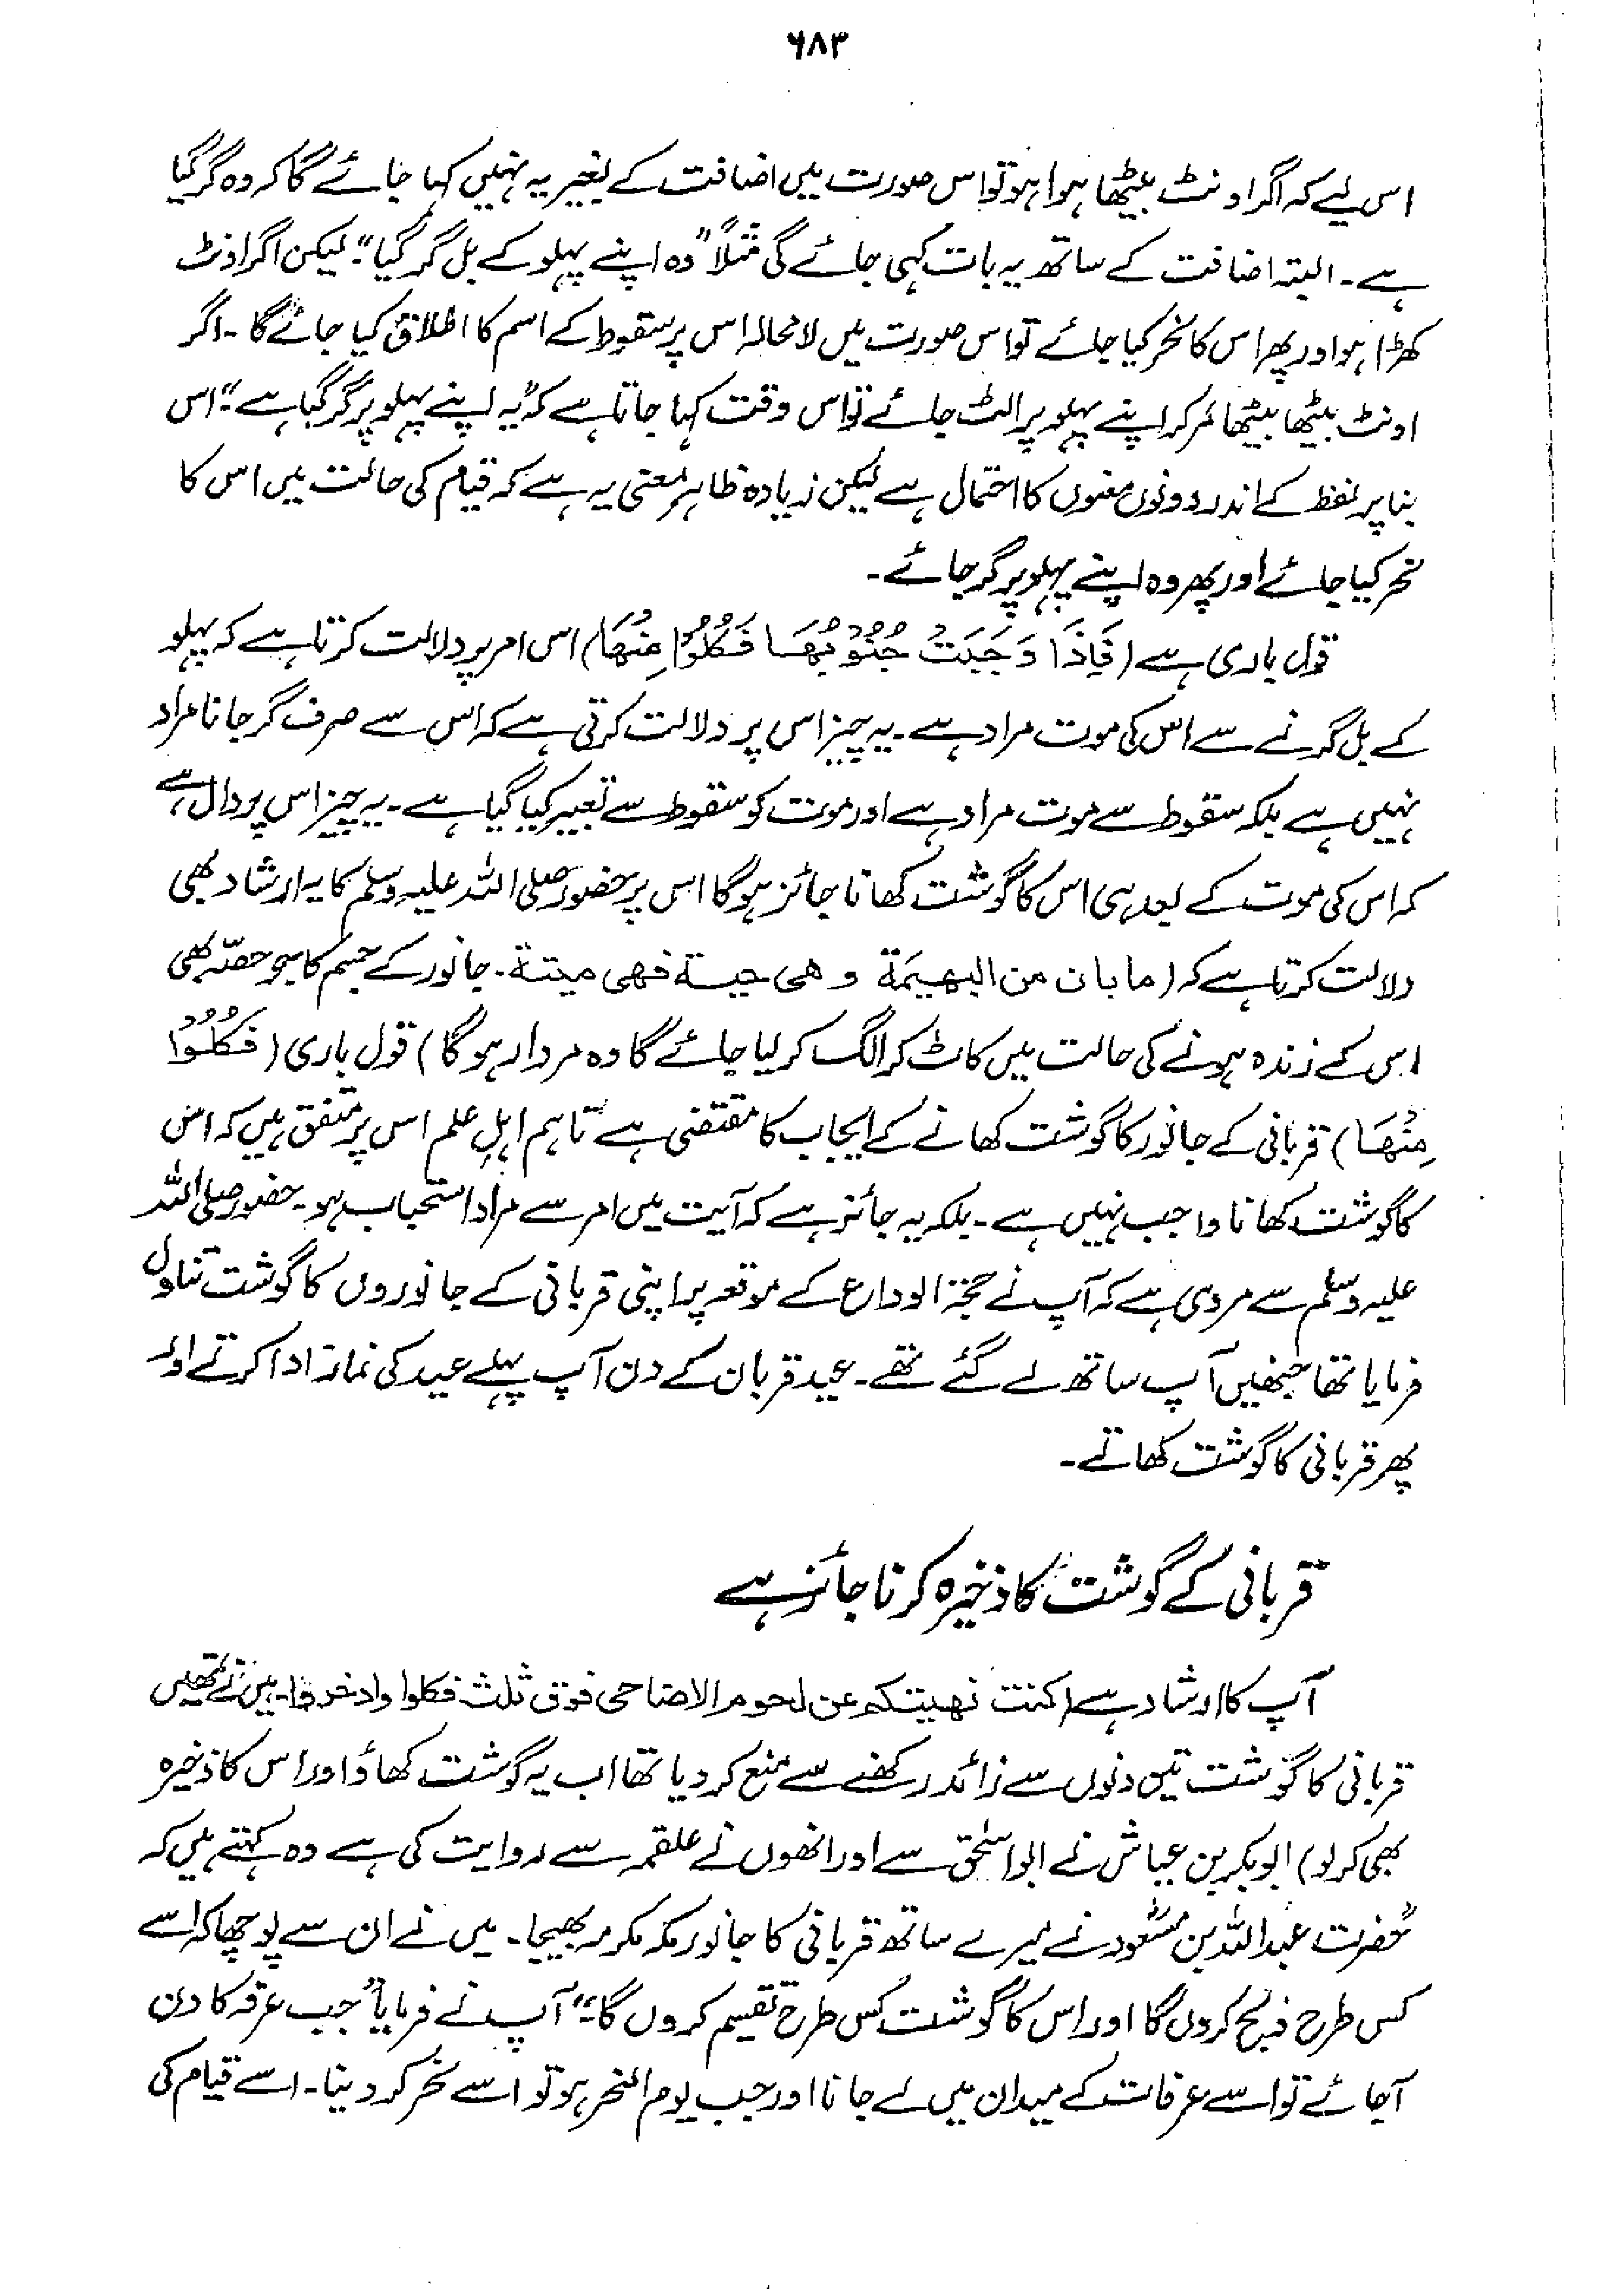 ۶۸۳
اس لیے کہ اگر اونٹ بیٹھا ہوا ہو تو اس صورت میں اضافت کے بغیر یہ نہیں کہا جائے گا کہ وہ گر گیا
ہے۔ البتہ اضافت کے ساتھ یہ بات کہی جائے گی مثلاً "وہ اپنے پہلو کے بل گر گیا"۔ لیکن اگر اونٹ
کھڑا ہو اور پھر اس کا نحر کیا جائے تو اس صورت میں لامحالہ اس پر سقوط کے اسم کا اطلاق کیا جائے گا۔ اگر
اونٹ بیٹھا بیٹھا مر کر اپنے پہلو پر الٹ جائے تو اس وقت کہا جاتا ہے کہ "یہ اپنے پہلو پر گر گیا ہے"۔ اس
بنا پر لفظ کے اندر دونوں معنوں کا احتمال ہے لیکن زیادہ ظاہر معنی یہ ہے کہ قیام کی حالت میں اس کا
نحر کیا جائے اور پھر وہ اپنے پہلو پر گر جائے۔
قول باری ہے (فَاِذَا وَجَبَتْ جُنُوْبُهَا فَكُلُوْا مِنْهَا) اس امر پر دلالت کرتا ہے کہ پہلو
کے بل گرنے سے اس کی موت مراد ہے۔ یہ چیز اس پر دلالت کرتی ہے کہ اس سے صرف گر جانا مراد
نہیں ہے بلکہ سقوط سے موت مراد ہے اور موت کو سقوط سے تعبیر کیا گیا ہے۔ یہ چیز اس پر دال ہے
کہ اس کی موت کے بعد ہی اس کا گوشت کھانا جائز ہوگا اس پر حضور صلی اللہ علیہ وسلم کا یہ ارشاد بھی
دلالت کرتا ہے کہ (ما بان من البهيمة وهى حية فهى ميتة۔ جانور کے جسم کا جو حصّہ بھی
اس کے زندہ ہونے کی حالت میں کاٹ کر الگ کر لیا جائے گا وہ مردار ہوگا) قول باری (فَكُلُوْا
مِنْهَا) قربانی کے جانور کا گوشت کھانے کے ایجاب کا مقتضی ہے تاہم اہل علم اس پر متفق ہیں کہ اس
کا گوشت کھانا واجب نہیں ہے۔ بلکہ یہ جائز ہے کہ آیت میں امر سے مراد استحباب ہو۔ حضور صلی اللہ
علیہ وسلم سے مروی ہے کہ آپ نے حجۃ الوداع کے موقعہ پر اپنی قربانی کے جانوروں کا گوشت تناول
فرمایا تھا جنھیں آپ ساتھ لے گئے تھے۔ عید قربان کے دن آپ پہلے عید کی نماز ادا کرتے اور
پھر قربانی کا گوشت کھاتے۔
قربانی کے گوشت کا ذخیرہ کرنا جائز ہے
آپ کا ارشاد ہے (كنت نهيتكم عن لحوم الاضاحى فوق ثلث فكلوا وادخروا۔ میں نے تمھیں
قربانی کا گوشت تین دنوں سے زائد رکھنے سے منع کر دیا تھا اب یہ گوشت کھاؤ اور اس کا ذخیرہ
بھی کر لو) ابوبکر بن عیاش نے ابو اسحٰق سے اور انھوں نے علقمہ سے روایت کی ہے وہ کہتے ہیں کہ
"حضرت عبداللہ بن مسعود نے میرے ساتھ قربانی کا جانور مکہ مکرمہ بھیجا۔ میں نے ان سے پوچھا کہ اسے
کس طرح ذبح کروں گا اور اس کا گوشت کس طرح تقسیم کروں گا"۔ آپ نے فرمایا "جب عرفہ کا دن
آجائے تو اسے عرفات کے میدان میں لے جانا اور جب یوم النحر ہو تو اسے نحر کر دینا۔ اسے قیام کی